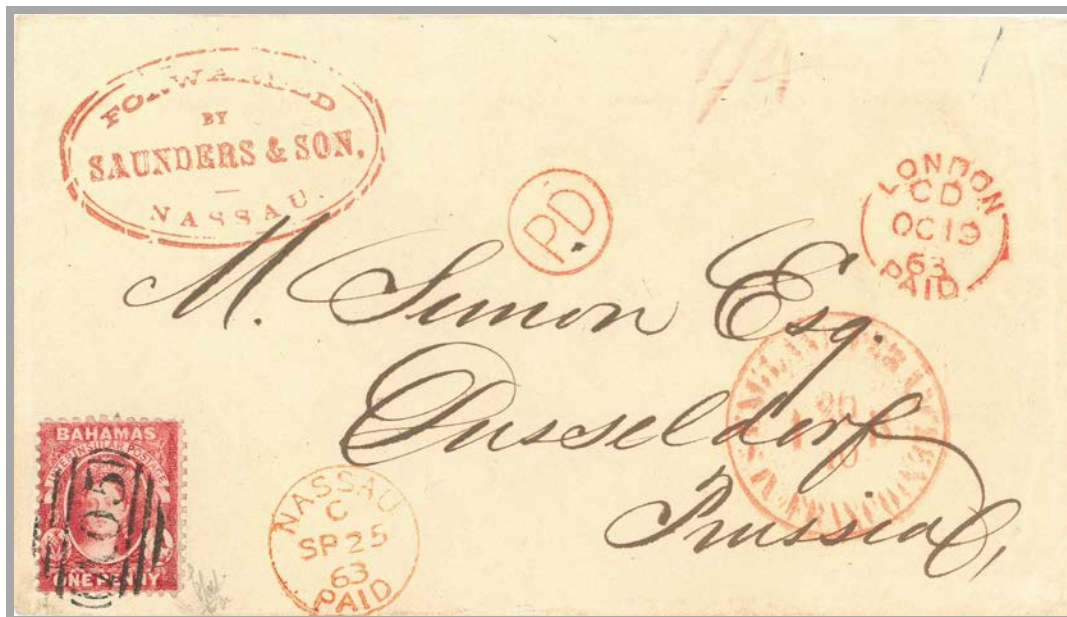 FORWARDED
BY
SAUNDERS & SON,
NASSAU.
1/4
PD
LONDON
CD
OC 19
63
PAID
M. Simon Esq.
Dusseldorf
Prussia,
20
10
FRANCO
BAHAMAS
INTERINSULAR POSTAGE
05
ONE PENNY
NASSAU
C
SP 25
63
PAID